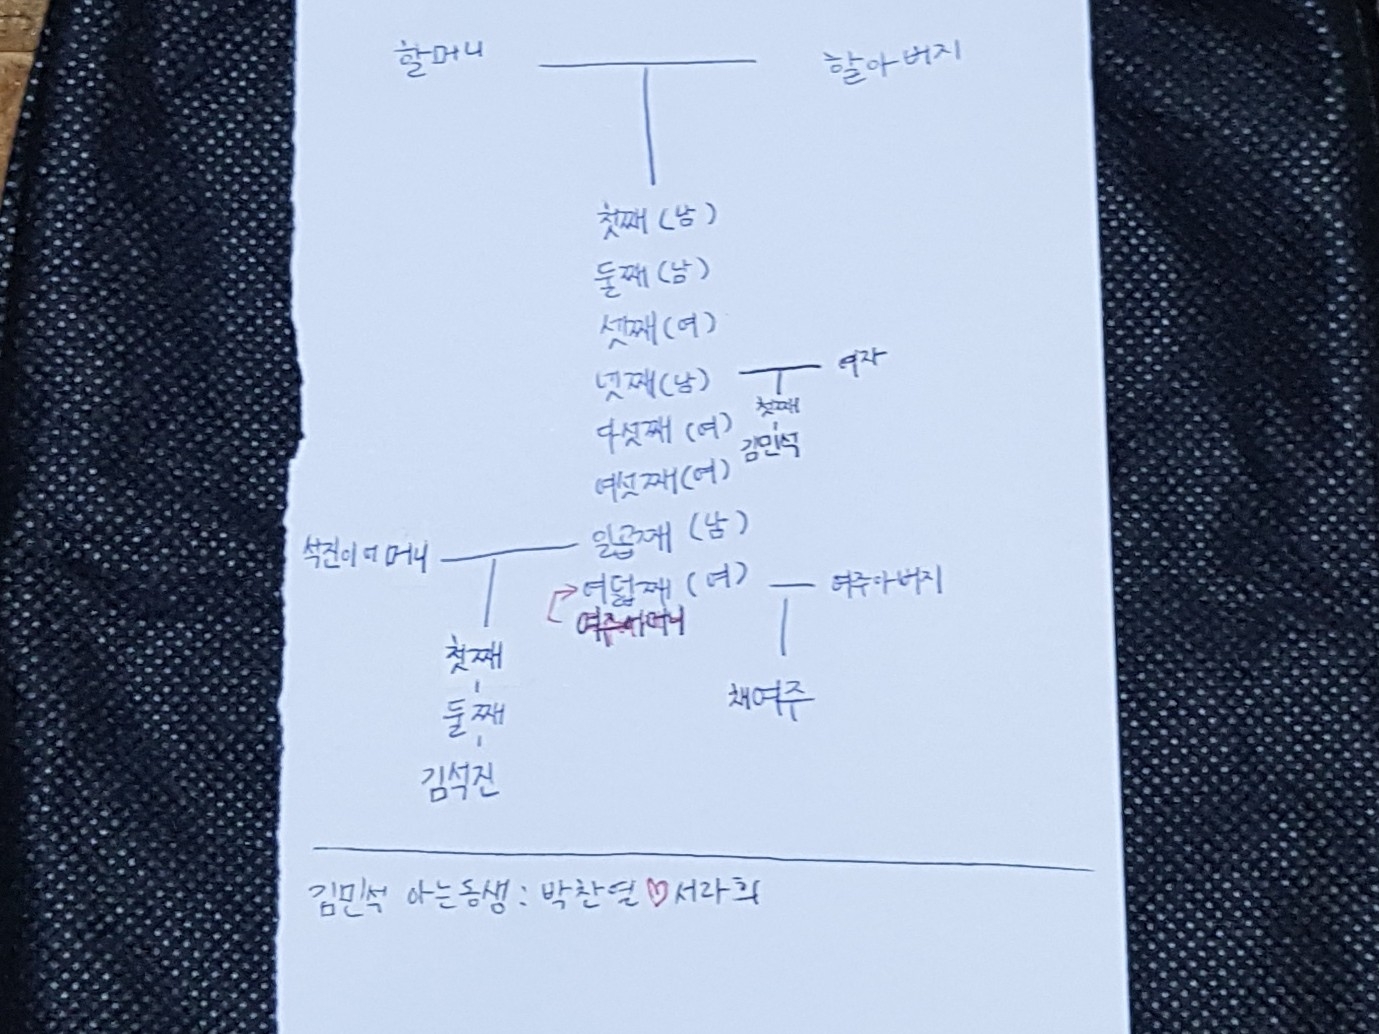 할머니 할아버지
첫째 (남)
둘째 (남)
셋째 (여)
넷째 (남) 여자
첫째
다섯째 (여) 김민석
여섯째 (여)
석진이어머니 일곱째 (남)
여덟째 (여) 여주아버지
여주어머니
첫째
둘째 채여주
김석진
김민석 아는동생 : 박찬열♡서라희